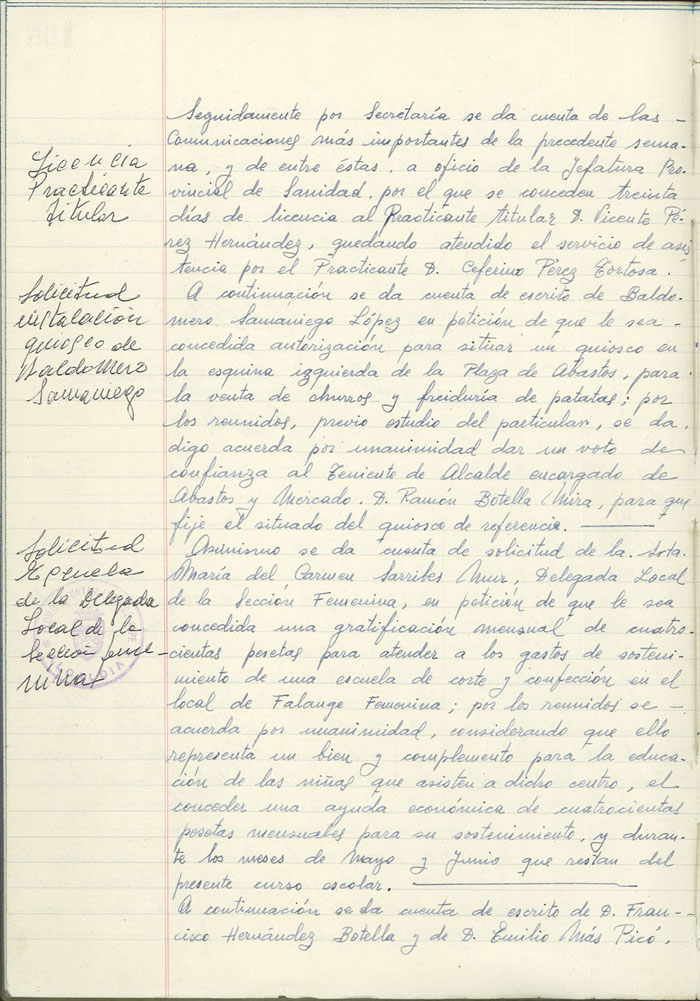 Seguidamente por Secretaría se da cuenta de las -
Comunicaciones más importantes de la precedente sema-
na, y de entre éstas, a oficio de la Jefatura Pro-
vincial de Sanidad, por el que se conceden treinta
días de licencia al Practicante titular D. Vicente Pé-
rez Hernández, quedando atendido el servicio de asis
tencia por el Practicante D. Ceferino Pérez Tortosa.
A continuación se da cuenta de escrito de Baldo-
mero Samaniego López en petición de que le sea -
concedida autorización para situar un quiosco en
la esquina izquierda de la Plaza de Abastos, para
la venta de churros y freiduría de patatas; por
los reunidos, previo estudio del particular, se da,
digo acuerda por unanimidad dar un voto de
confianza al Teniente de Alcalde encargado de
Abastos y Mercado, D. Ramón Botella Mira, para que
fije el situado del quiosco de referencia.
Asimismo se da cuenta de solicitud de la Srta.
María del Carmen Sarribes Mur, Delegada Local
de la Sección Femenina, en petición de que le sea
concedida una gratificación mensual de cuatro-
cientas pesetas para atender a los gastos de sosteni-
miento de una escuela de corte y confección en el
local de Falange Femenina; por los reunidos se -
acuerda por unanimidad, considerando que ello
representa un bien y complemento para la educa-
ción de las niñas que asisten a dicho centro, el
conceder una ayuda económica de cuatrocientas
pesetas mensuales para su sostenimiento, y duran-
te los meses de Mayo y Junio que restan del
presente curso escolar.
A continuación se da cuenta de escrito de D. Fran-
cisco Hernández Botella y de D. Emilio Más Picó,
Licencia
Practicante
titular
Solicitud
instalación
quiosco de
Baldomero
Samaniego
Solicitud
Escuela
de la Delegada
Local de la
Sección feme-
nina